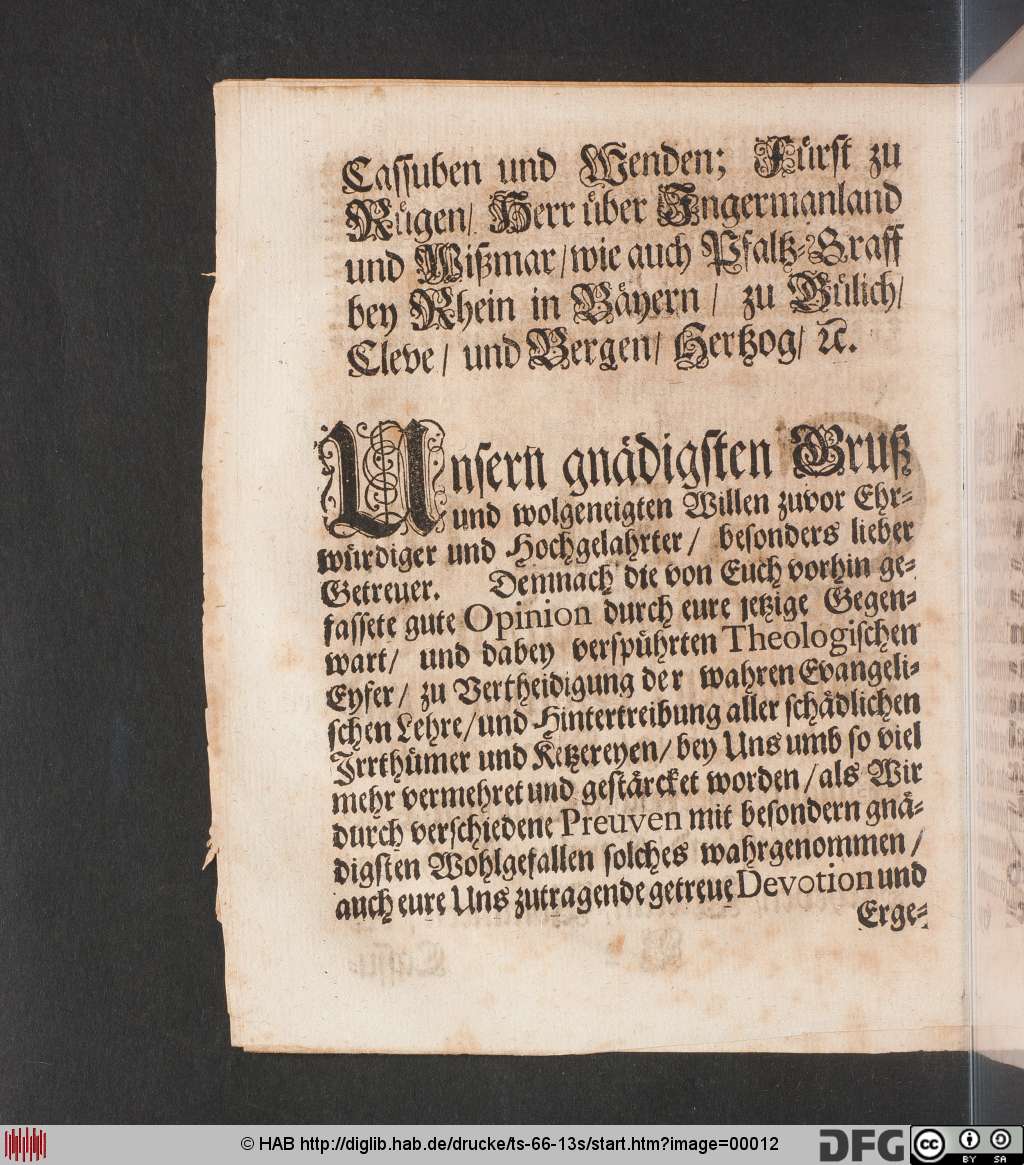 Cassuben und Wenden; Fürst zu
Rügen/ Herr über Ingermanland
und Wißmar/ wie auch Pfaltz-Graff
bey Rhein in Bäyern / zu Gülich/
Cleve / und Bergen/ Hertzog/ ꝛc.
Unsern gnädigsten Gruß
und wolgeneigten Willen zuvor Ehr-
würdiger und Hochgelahrter/ besonders lieber
Getreuer. Demnach die von Euch vorhin ge-
fassete gute Opinion durch eure jetzige Gegen-
wart/ und dabey verspührten Theologischen
Eyfer/ zu Vertheidigung der wahren Evangeli-
schen Lehre/ und Hintertreibung aller schädlichen
Irrthümer und Ketzereyen/ bey Uns umb so viel
mehr vermehret und gestärcket worden/ als Wir
durch verschiedene Preuven mit besondern gnä-
digsten Wohlgefallen solches wahrgenommen/
auch eure Uns zutragende getreue Devotion und
Erge-
© HAB http://diglib.hab.de/drucke/ts-66-13s/start.htm?image=00012
DFG
cc BY SA